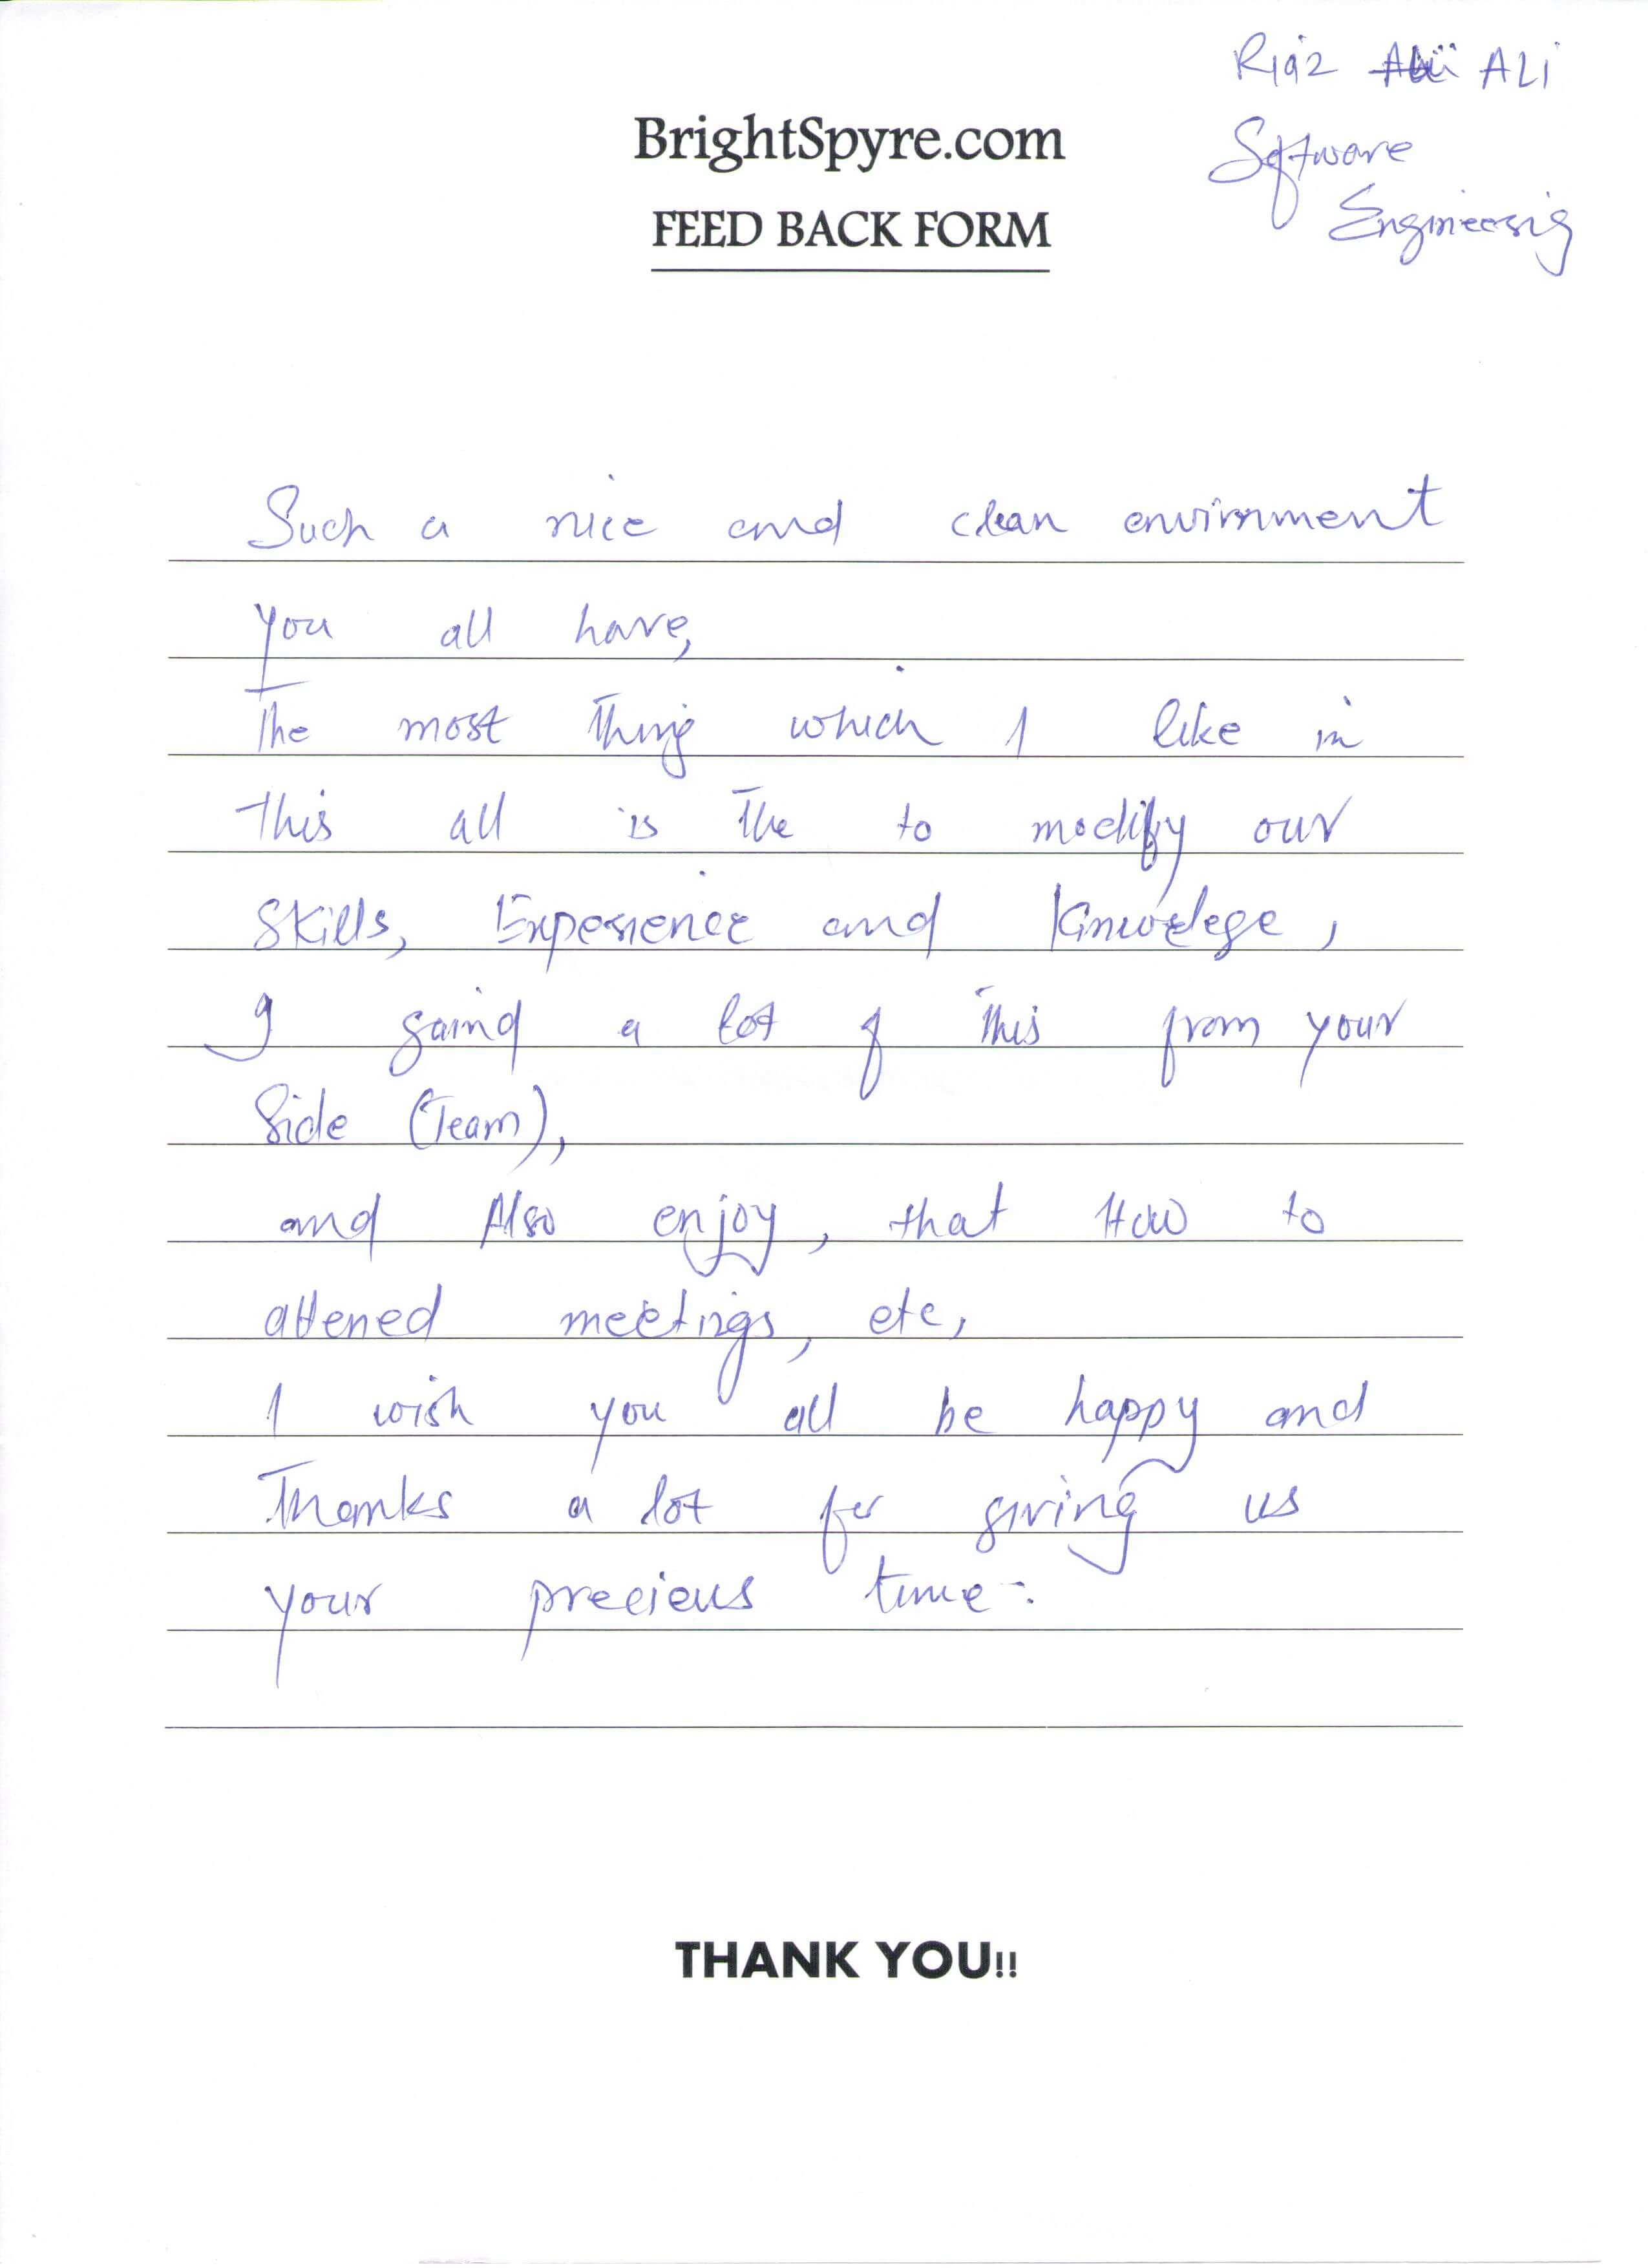 Riaz ALi
Software
Engineering
BrightSpyre.com
FEED BACK FORM
Such a nice and clean envirnment
you all have,
The most thing which I like in
this all is the to modify our
Skills, Experience and Knwolege,
I gaind a lot of this from your
Side (Team),
and Also enjoy, that How to
attened meetings, etc,
I wish you all be happy and
Thanks a lot for giving us
your precious time:
THANK YOU!!